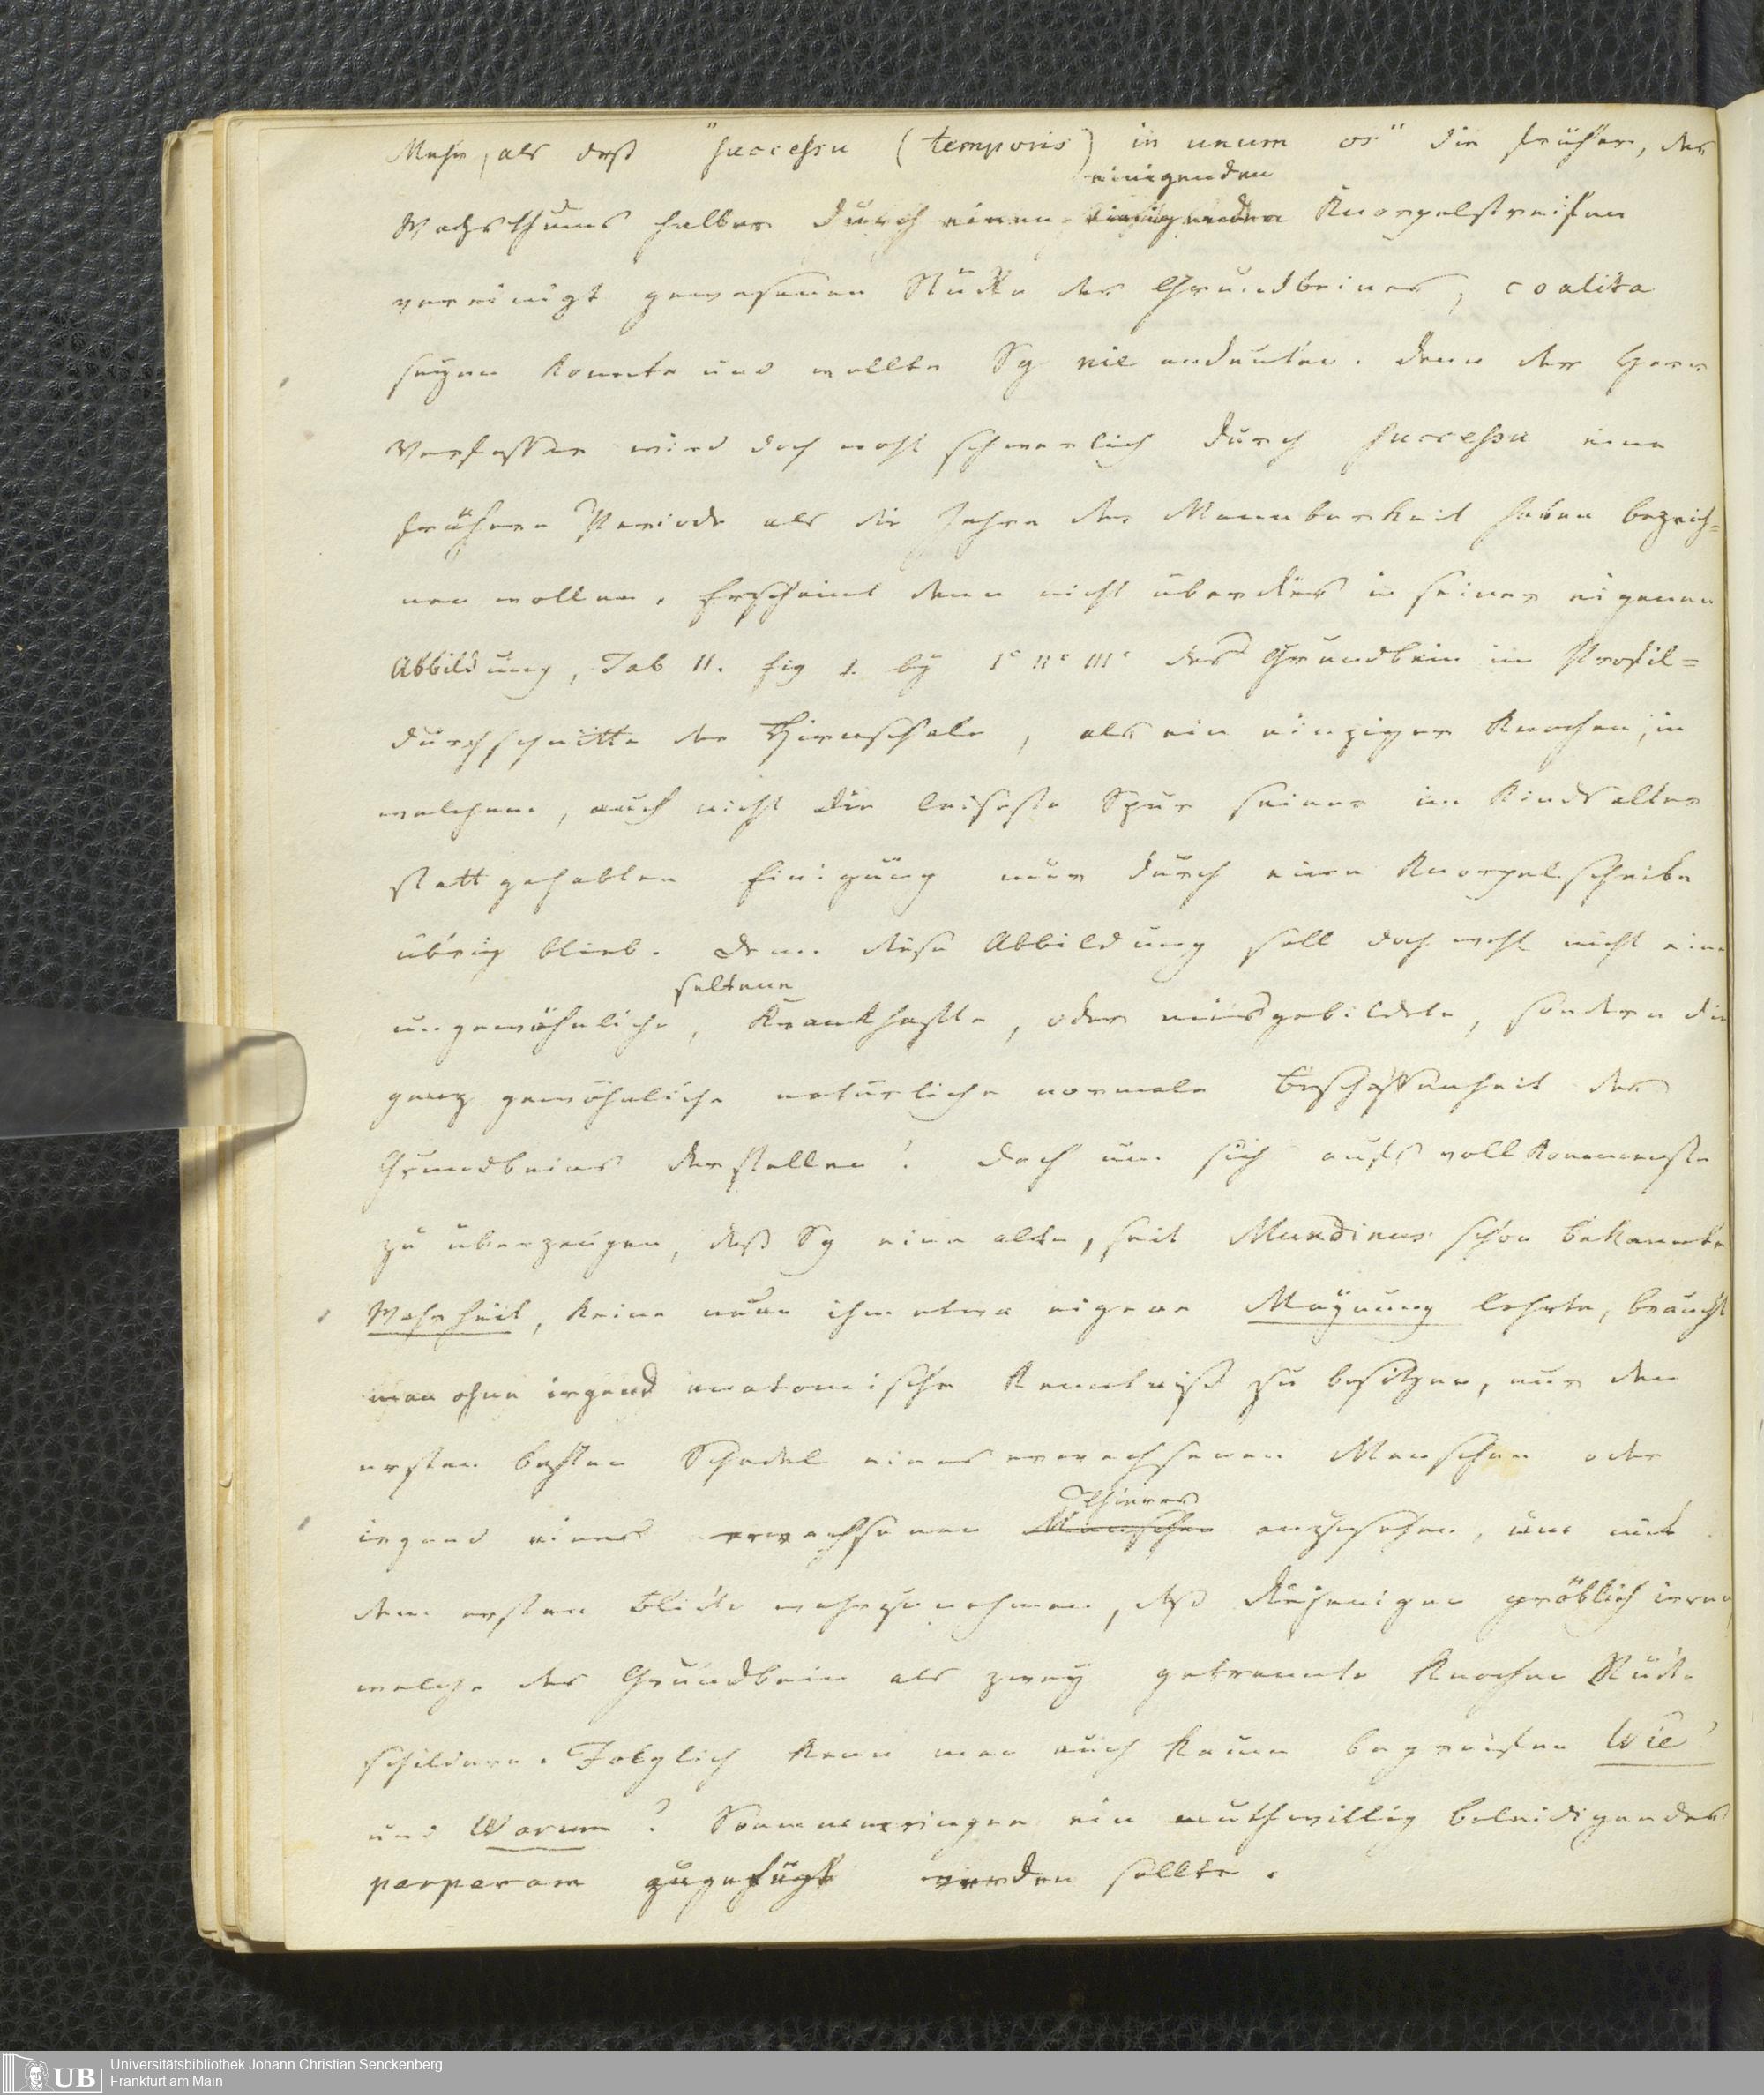 Mehr, als daß "successu (temporis) in unum os" die früher, des
einigenden
Wachsthums halber durch einen Knorpelstreifen
vereinigt gewesenen Stücke des Grundbeines, coalita
seyen konnte und wollte Sg nie andeuten. Denn der Herr
Verfasser wird doch wohl schwerlich durch successu eine
frühere Periode als die Jahre der Mannbarkeit haben bezeich=
nen wollen. Erscheint denn nicht überdies in seiner eigenen
Abbildung, Tab II. fig 1. by I° II° III° das Grundbein im Profil=
durchschnitte der Hirnschale, als ein einziger Knochen, in
welchem, auch nicht die leiseste Spur seiner im Kindsalter
statt gehabten Einigung nur durch eine Knorpelscheibe
übrig blieb. Denn diese Abbildung soll doch wohl nicht eine
seltene
ungewöhnliche, Krankhafte, oder misgebildete, sondern die
ganz gewöhnliche natürliche normale Beschaffenheit des
Grundbeins darstellen! Doch um sich aufs vollkommenste
zu überzeugen, daß Sg eine alte, seit Mundinus schon bekannte
Wahrheit, keine neue ihm etwa eigene Meynung lehrte, braucht
man ohne irgend anatomische Kenntniß zu besitzen, nur den
ersten besten Schedel eines erwachsenen Menschen oder
Thieres
irgend eines erwachsenen Menschen anzusehen, um mit
dem ersten Blicke wahrzunehmen, daß diejenigen gröblich irren
welche das Grundbein als zwey getrennte Knochen Stücke
schildern. Folglich kann man auch kaum begreifen Wie?
und Warum? Soemmerringen ein muthwillig beleidigendes
perperam zugefügt werden sollte.
Universitätsbibliothek Johann Christian Senckenberg
Frankfurt am Main
UB